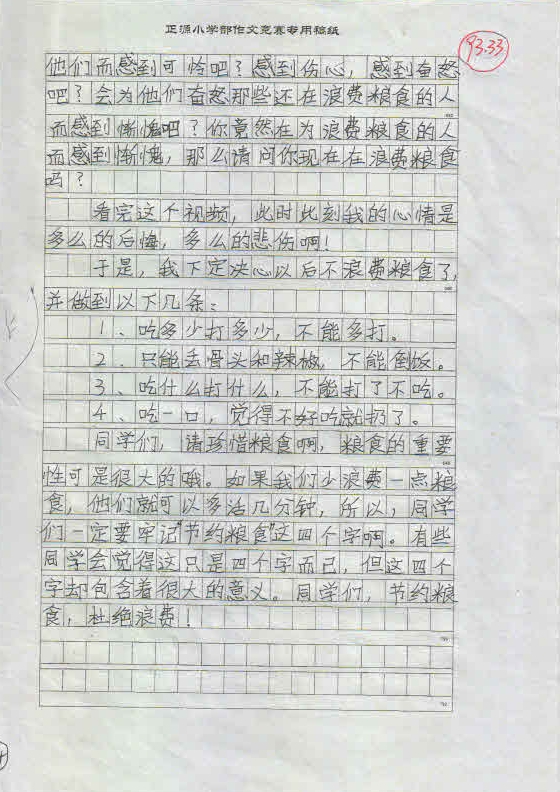 正源小学部作文竞赛专用稿纸
93.33
他们而感到可怜吧？感到伤心，感到奋怒
吧？会为他们奋怒那些还在浪费粮食的人
而感到惭愧吧？你竟然在为浪费粮食的人
而感到惭愧，那么请问你现在在浪费粮食
吗？
看完这个视频，此时此刻我的心情是
多么的后悔，多么的悲伤啊！
于是，我下定决心以后不浪费粮食了，
并做到以下几条：
1、吃多少打多少，不能多打。
2、只能丢骨头和辣椒，不能倒饭。
3、吃什么打什么，不能打了不吃。
4、吃一口，觉得不好吃就扔了。
同学们，请珍惜粮食啊，粮食的重要
性可是很大的哦。如果我们少浪费一点粮
食，他们就可以多活几分钟，所以，同学
们一定要牢记“节约粮食”这四个字啊。有些
同学会觉得这只是四个字而已，但这四个
字却包含着很大的意义。同学们，节约粮
食，杜绝浪费！